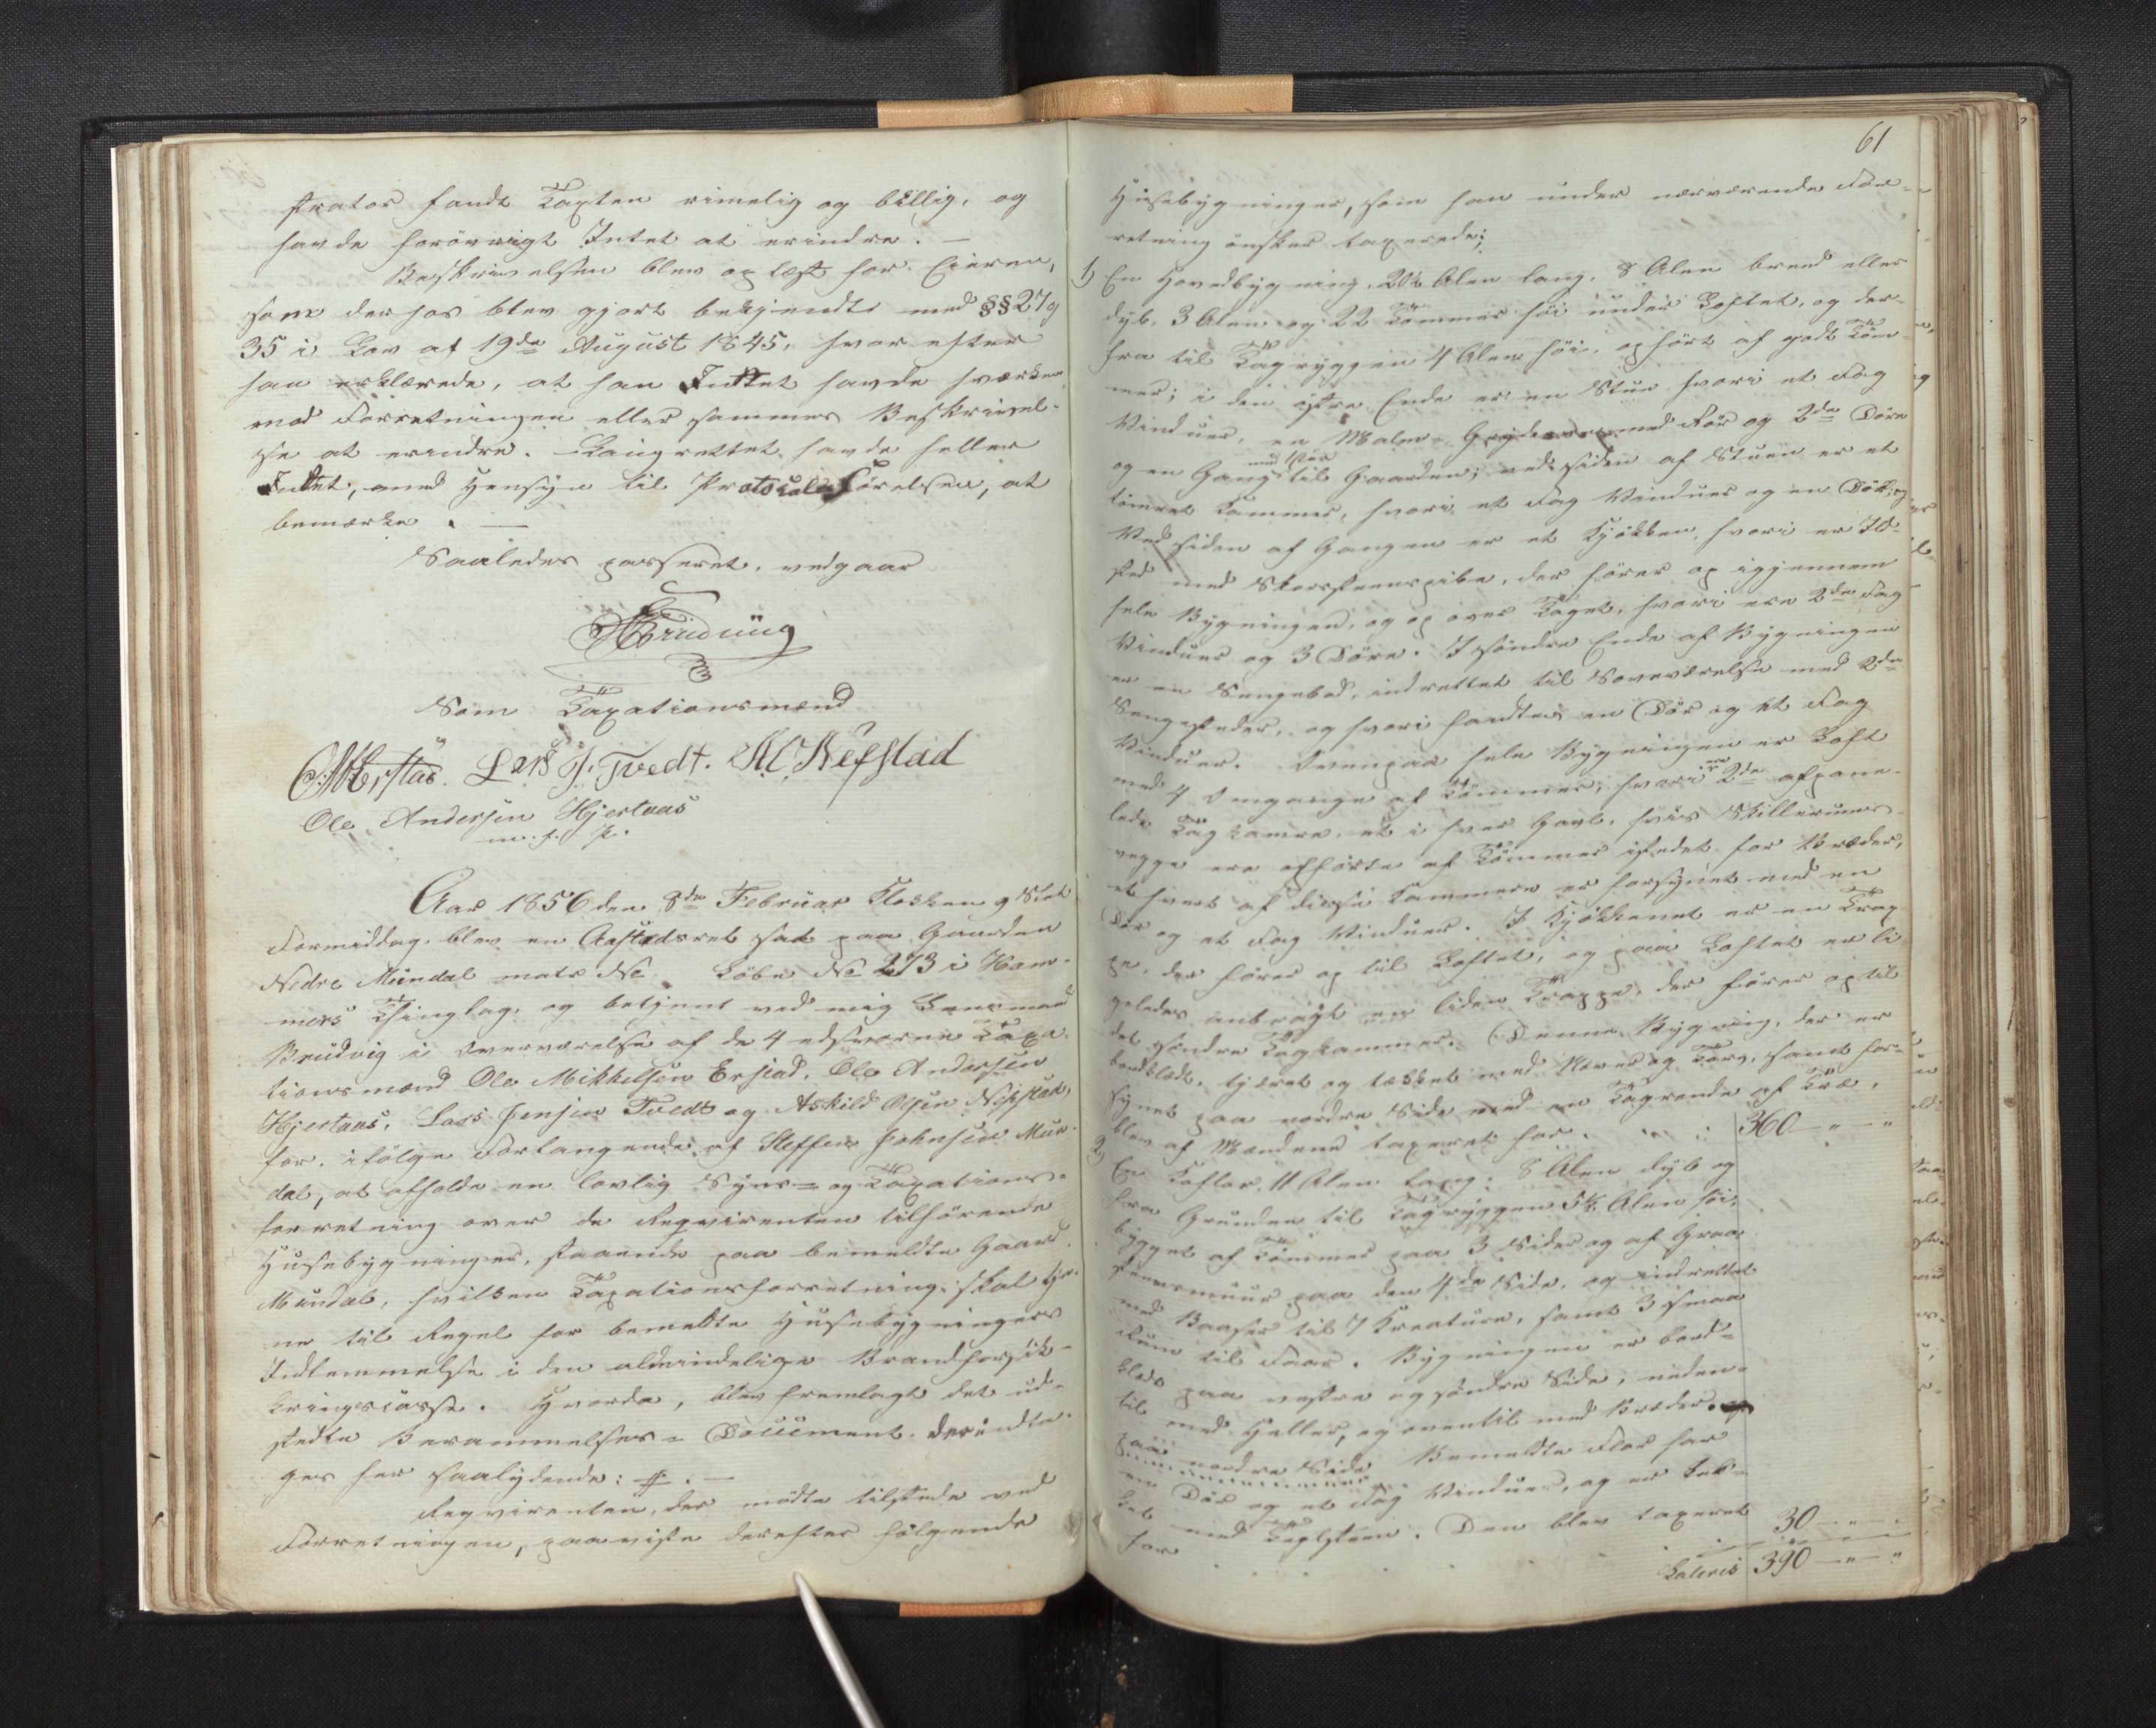 strator fandt Taxten rimelig og billig, og
havde forövrigt Intet at erindre. —
Beskrivelsen blev oplæst for Eieren,
som derhos blev gjort bekjendt med §§ 27 og
35 i Lov af 19de August 1845, hvorefter
han erklærede, at han Intet havde hverken
mod Forretningen eller sammes Beskrivel-
se at erindre. – Laugrettet havde heller
Intet, med Hensyn til Protokolførelsen, at
bemærke. —
Saaledes passeret, vedgaar
Brudviig
Som Taxationsmænd
O. M. Erstad. Lars J. Tvedt. A. O. Nepstad
Ole Andersen Hjertaas
m. f. P.
Aar 1856 den 8de Februar Klokken 9 Slet
Formiddag, blev en Aastedsret sat paa Gaarden
Nedre Mundal matr No Löbe No 273 i Ham-
mers Thinglag, og betjent ved mig Lensmand
Brudvig i Overværelse af de 4 edsvorne Taxa-
tionsmænd Ole Mikkelsen Erstad, Ole Andersen
Hjertaas, Lars Jensen Tvedt og Askild Olsen Nepstad,
for, ifölge Forlangende af Steffen Johnsen Mun-
dal, at afholde en lovlig Syns- og Taxations-
forretning over de Reqvirenten tilhörende
Husebygninger, staaende paa bemeldte Gaard
Mundal, hvilken Taxationsforretning skal tje-
ne til Regel for bemeldte Husebygningers
Indlemmelse i den almindelige Brandforsik-
kringscasse. Hvorda, blev fremlagt det ud-
stedte Berammelses-Document, der indta-
ges her saalydende: #. —
Reqvirenten, der mödte tilstede ved
Forretningen, paaviste derefter fölgende
61
Husebygninger, som han under nærværende For-
retning önsker taxerede;
1) En Hovedbygning, 20½ Alen lang, 8 Alen breed eller
dyb, 3 Alen og 22 Tommer höi under Loftet, og der-
fra til Tagryggen 4 Alen höi, opfört af godt Töm-
mer; i den östre Ende er en Stue hvori et Fag
Vinduer, en Malm- med Rör og 2de Döre
og en Gang med Dör til Gaarden; ved Siden af Stuen er et
tömret Kammer, hvori et Fag Vinduer og en Dör; og
Ved Siden af Gangen er et Kjökken, hvori er Ild-
sted med Skorsteenspibe, der förer op igjennem
hele Bygningen, og op over Taget, hvori ere 2de Fag
Vinduer og 3 Döre. I söndre Ende af Bygningen
er en Sengebod, indrettet til Soveværelse med 2de
Sengesteder, og hvori fandtes en Dör og et Fag
Vinduer. Ovenpaa hele Bygningen er Loft
med 4 Omgange af Tömmer, hvori ere 2de afpane-
lede Tagkamre, et i hver Gavl, hvis Skillerums-
vegge ere opförte af Tömmer istedet for Bræder,
et hvert af disse Kammere er forsynet med en
Dör og et Fag Vinduer. I Kjökkenet er en Trap-
pe, der förer op til Loftet, og paa Loftet er li-
geledes anbragt en liden Trappe, der förer op til
det söndre Tagkammer. Denne Bygning, der er
bordklædt, tjæret og tækket med Næver og Törv, samt for-
synet paa nordre Side med en Tagrende af Træ,
blev af Mændene taxeret for . " . : 360 — " — "
2) En Koflor, 11 Alen lang, 8 Alen dyb og
fra Grunden til Tagryggen 5½ Alen höi,
bygget af Tömmer paa 3 Sider og af Graa-
steensmuur paa den 4de Side, og indrettet
med Baaser til 7 Kreature, samt 3 smaa
Rum til Faar. Bygningen er bord-
klædt paa vestre og söndre Side, neden-
til med Heller, og oventil med Bræder.
paa nordre Side Bemeldte Flor har
en Dör og et Fag Vinduer, og er tæk-
ket med Taglsteen. Den blev taxeret
for . . . . . 30 — " — "
Lateris 390 — " — "